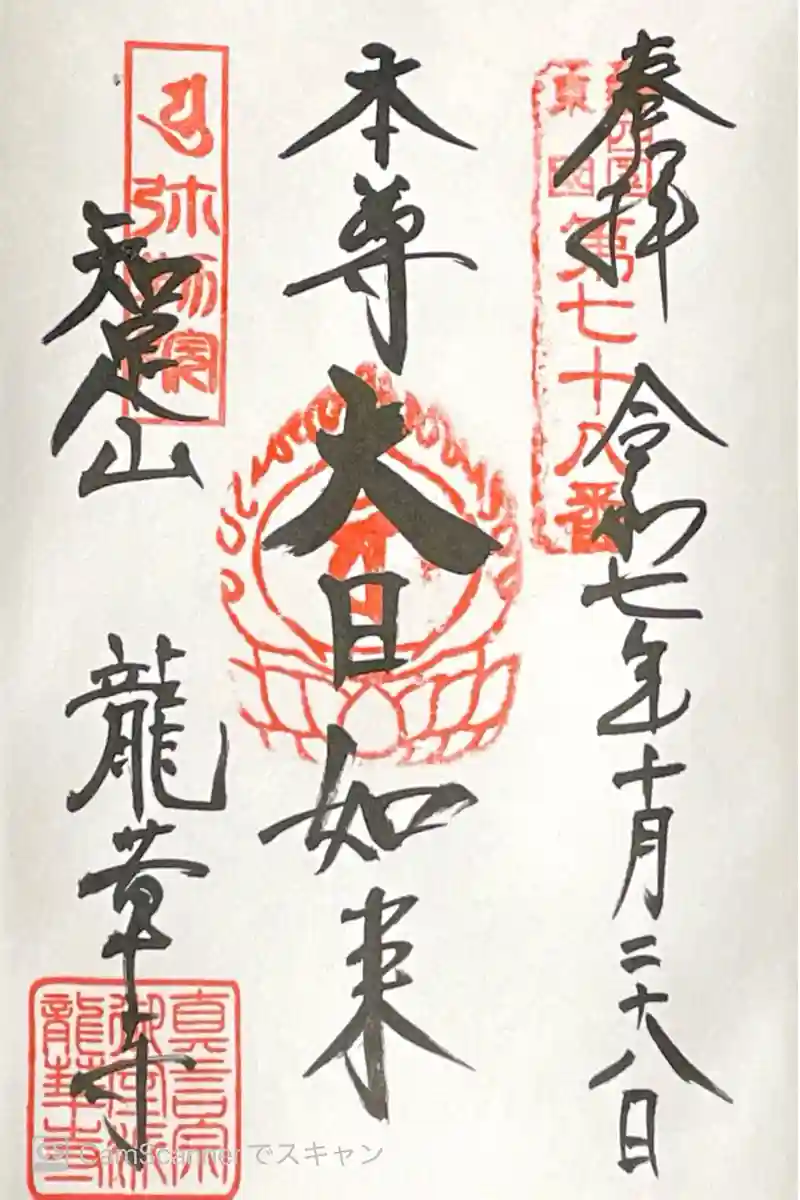 奉拝 令和七年十月二十八日
東國
第七十八番
本尊 大日如来
弥勒院
知足山 龍華寺
真言宗
御室派
龍華寺
CS CamScanner でスキャン